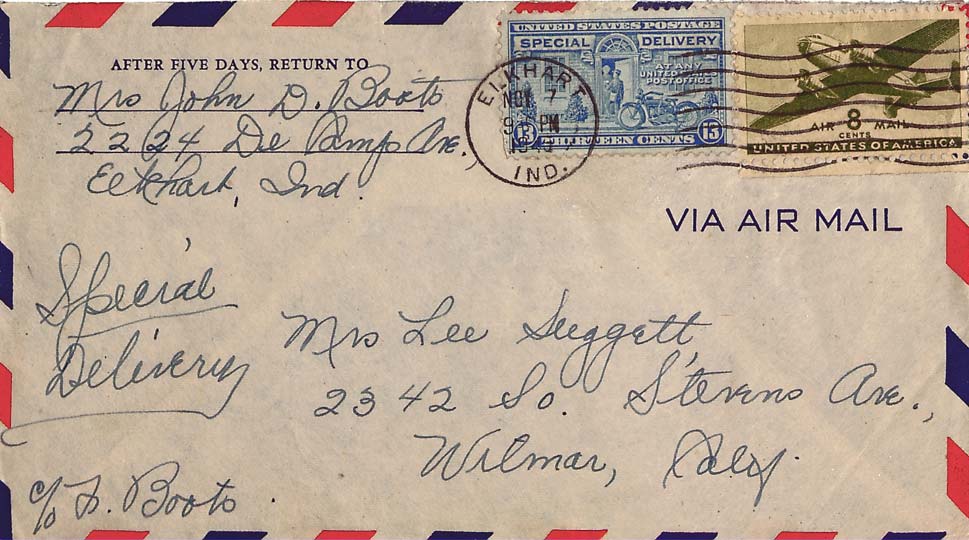 AFTER FIVE DAYS, RETURN TO
Mrs John D. Boots
2224 De Camp Ave.
Elkhart, Ind.
UNITED STATES POSTAGE
SPECIAL DELIVERY
AT ANY
UNITED STATES
POST OFFICE
13 THIRTEEN CENTS 13
ELKHART
NOV 7
PM
IND.
8
CENTS
AIR MAIL
UNITED STATES OF AMERICA
VIA AIR MAIL
Special
Delivery
Mrs Lee Suggett
2342 So. Stevens Ave.,
Wilmar, Calif.
c/o F. Boots